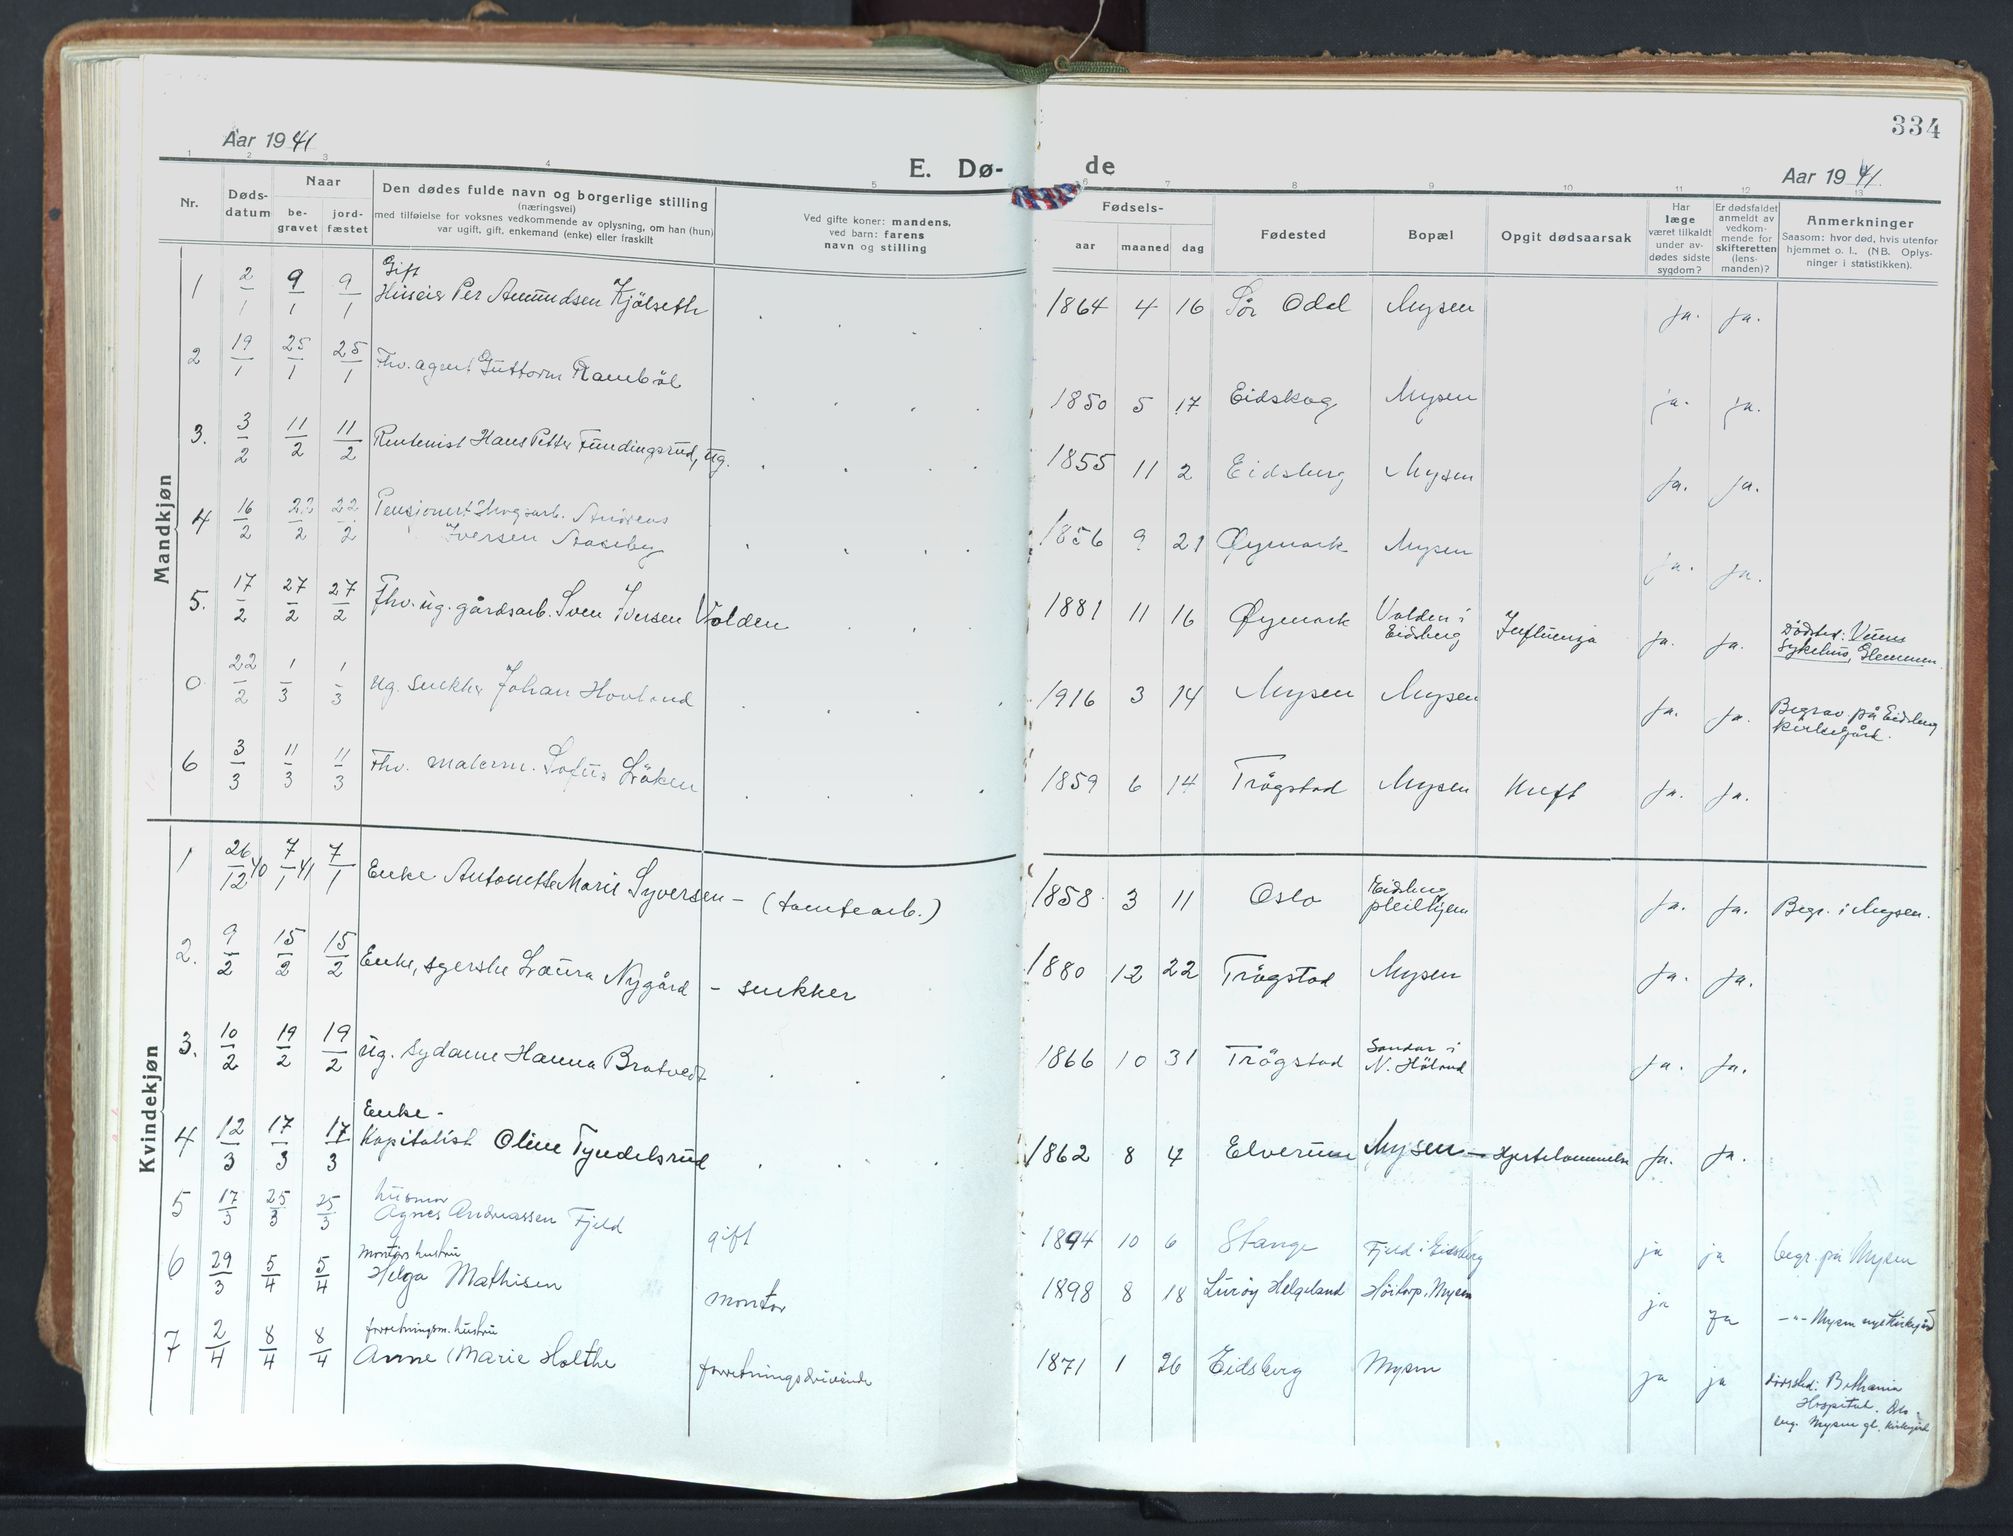 334
Aar 1941
E. Dø-
de
Aar 1941
1 2 3 4 5 6 7 8 9 10 11 12 13
Nr.
Døds-
datum
Naar
be-
gravet
jord-
fæstet
Den dødes fulde navn og borgerlige stilling
(næringsvei)
med tilføielse for voksnes vedkommende av oplysning, om han (hun)
var ugift, gift, enkemand (enke) eller fraskilt
Ved gifte koner: mandens,
ved barn: farens
navn og stilling
Fødsels-
aar maaned dag
Fødested
Bopæl
Opgit dødsaarsak
Har
læge
været tilkaldt
under av-
dødes sidste
sygdom?
Er dødsfaldet
anmeldt av
vedkom-
mende for
skifteretten
(lens-
manden)?
Anmerkninger
Saasom: hvor død, hvis utenfor
hjemmet o. l., (NB. Oplys-
ninger i statistikken).
Mandkjøn
Gift
1 2/1 9/1 9/1 Huseier Per Amundsen Kjölseth 1864 4 16 Sör Odal Mysen ja. ja.
2 19/1 25/1 25/1 Fhv. agent Guttorm Ramböl 1850 5 17 Eidskog Mysen ja. ja.
3. 3/2 11/2 11/2 Rentenist Hans Petter Fundingsrud, ug. 1855 11 2 Eidsberg Mysen ja. ja.
4 16/2 22/2 22/2 Pensionert skogsarb. Andreas
Iversen Aaseby 1856 9 21 Øymark Mysen ja. ja.
5. 17/2 27/2 27/2 Fhv. ug. gårdsarb. Sven Iversen Volden 1881 11 16 Øymark Volden i
Eidsberg Influenza ja. ja. Dödsted: Veum
sykehus, Glemmen.
0 22/2 1/3 1/3 Ug. snekker Johan Hovland 1916 3 14 Mysen Mysen ja. ja. Begrav på Eidsberg
kirkegård.
6 3/3 11/3 11/3 Fhv. malerm. Sofus Löken 1859 6 14 Trögstad Mysen Kreft ja. ja.
Kvindekjøn
1 26/12 40 7/1 41 7/1 Enke Antonette Marie Syversen - (tomtearb.) 1858 3 11 Oslo Eidsberg
pleihjem ja. ja. Begr. i Mysen.
2. 9/2 15/2 15/2 Enke, syerske Laura Nygård - snekker 1880 12 22 Trögstad Mysen ja. ja.
3. 10/2 19/2 19/2 Ug. sydame Hanna Bratvedt 1866 10 31 Trögstad Sandar i
N. Höland ja. ja.
Enke -
4 12/3 17/3 17/3 Kapitalist Oline Tyndelsrud 1862 8 4 Elverum Mysen - Hjertelammelse ja. ja.
husmor
5 17/3 25/3 25/3 Agnes Andreassen Fjeld gift 1894 10 6 Stange Fjeld i Eidsberg ja ja begr. på Mysen
montörs hustru
6 29/3 5/4 5/4 Helga Mathisen montör 1898 8 18 Luröy Helgeland Höitorp, Mysen ja ja -"- Mysen nye kirkegård
forretningsm. hustru
7 2/4 8/4 8/4 Anne Marie Holthe forretningsdrivende 1871 1 26 Eidsberg Mysen ja ja dödssted: Bethania
Hospital. Oslo
Mysen gl. kirkegård